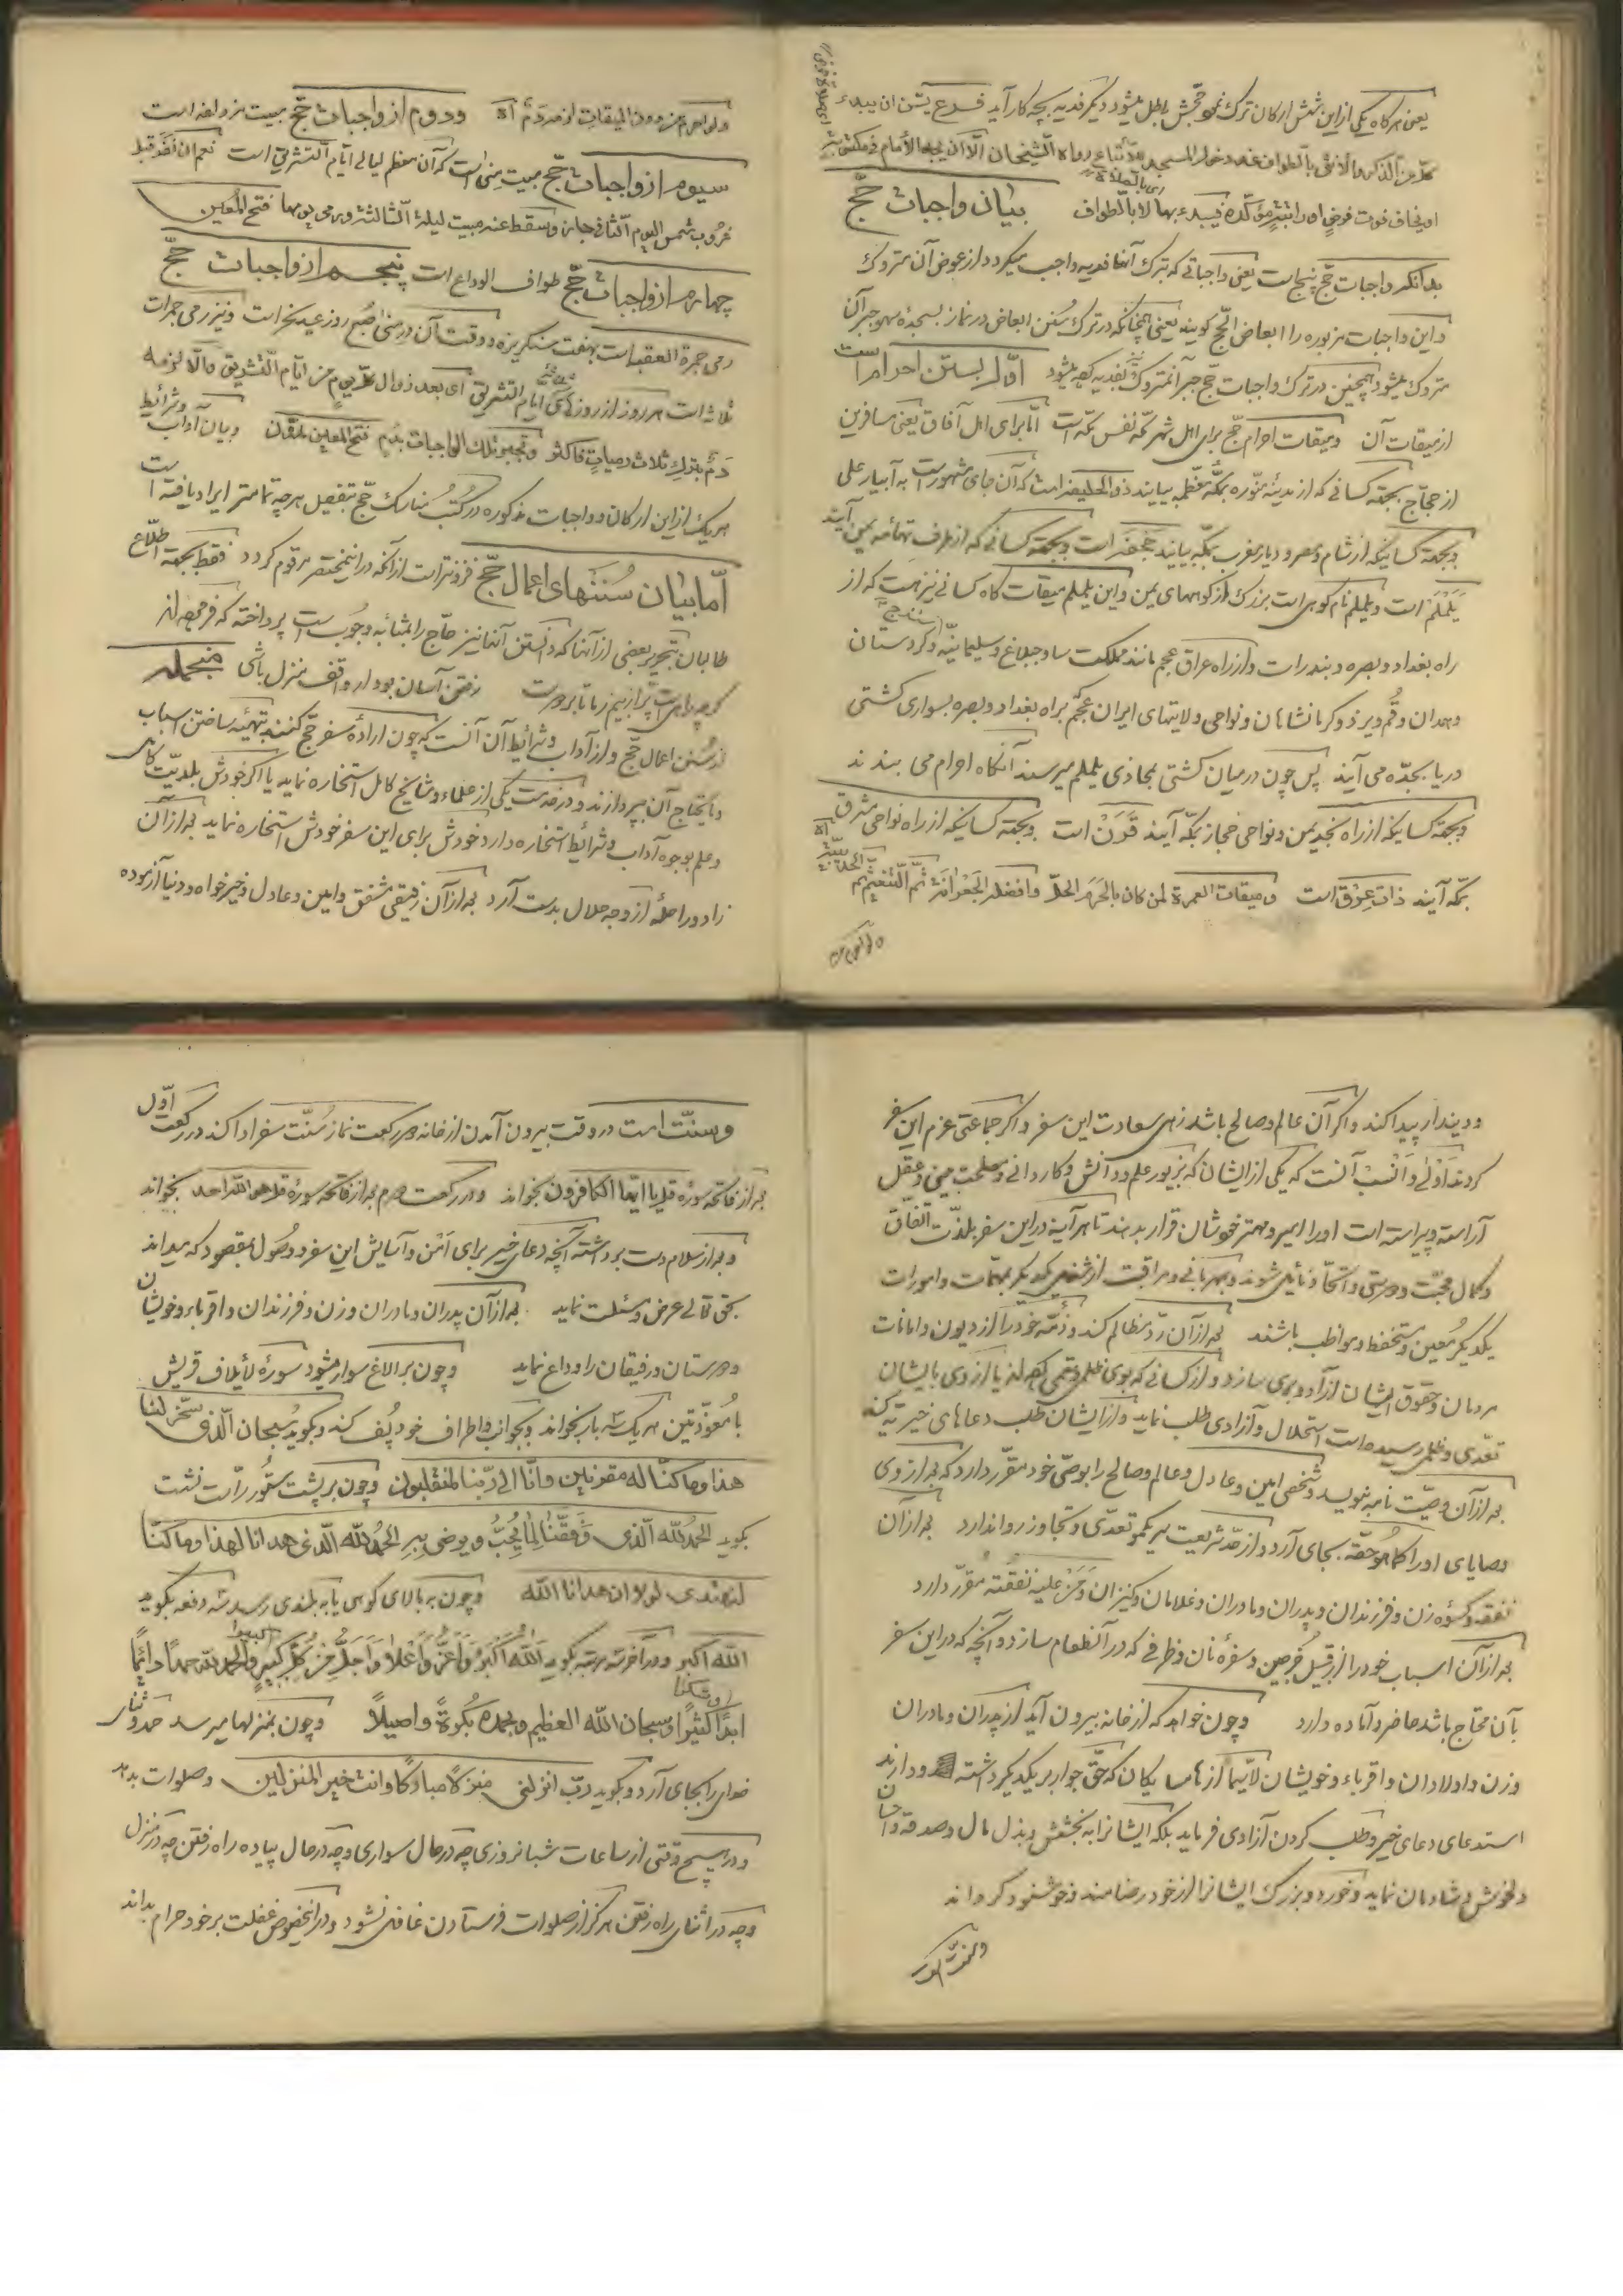 یعنی هرگاه یکی ازاین شش ارکان ترک نمود حجّش باطل میشود دیگر فدیه بچه کار آید فرع یسنّ ان یبدء
کلّ من الذکر والانثی بالطواف عند دخول المسجد للاتّباع رواه الشیخان الّا ان یجد الأمام فی مکتوبة
او یخاف فوت فرض او راتبة مؤکّدة فیبدء بها لا بالطواف بیان واجبات حجّ
بدانکه واجبات حجّ پنج است یعنی واجباتی که بترک آنها فدیه واجب میگردد از عوض آن متروک
واین واجبات مزبوره را ابعاض الحجّ گویند یعنی همچنانکه در ترک سُنن ابعاض در نماز بسجدهٔ سهو جبر آن
متروک میشود همچنین در ترک واجبات حجّ جبر آنمتروک بفدیه میشود اوّل بستن احرام است
از میقات آن ومیقات احرام حجّ برای اهل شهر مکّه نفس مکّه است امّا برای اهل آفاق یعنی مسافرین
از حجّاج بجهة کسانی که از مدینهٔ منوّره بمکّهٔ معظّمه بیایند ذوالحلیفه است که آن جای مشهور است به آبیار علی
وبجهة کسانیکه از شام ومصر ودیار مغرب بمکّه بیایند جُحفه است وبجهة کسانی که از طرف تهامهٔ یمن آیند
یَلَمْلَم است ویلملم نام کوهی است بزرگ از کوههای یمن واین یلملم میقات گاه کسانی نیز هست که از
راه بغداد وبصره وبندرات واز راه عراق عجم مانند مملکت ساوجبلاغ وسلیمانیّه وکردستان
سنندج
وهمدان وقُم ویزد وکرمانشاهان ونواحی ولایتهای ایران عجم براه بغداد وبصره بسواری کشتی
دریا بجدّه می آیند پس چون درمیان کشتی بمحاذی یلملم میرسند آنگاه احرام می بندند
وبجهة کسانیکه از راه نجد یمن ونواحی حجاز بمکّه آیند قَرَنْ است وبجهة کسانیکه از راه نواحی مشرق
بمکّه آیند ذات عِرْق است ومیقات العمرة لمن کان بالحَرَم الحلّ وافضله الجعرانة ثمّ التنعیم ثمّ
الحدیبیّة اه
ولو احرم من دون المیقات لزمه دَمٌ اه ودوم از واجبات حجّ مبیت مزدلفه است
سیوم از واجبات حجّ مبیت منی است که آن معظم لیالی ایّام التشریق است نعم ان نفر قبل
غروب شمس الیوم الثانی جاز وسقط عنه مبیت لیلة الثالثة ورمی یومها فتح المعین
چهارم از واجبات حجّ طواف الوداع است پنجم از واجبات حجّ
رمی جمرة العقبه است بهفت سنگریزه ووقت آن در منی صبح روز عید نحر است ونیز رمی جمرات
ثلاثه است هر روز از روزهای ایّام التشریق ای بعد زوال کلّ یوم من ایّام التشریق والّا لزمه
دَمٌ بترک ثلاث رمیات فاکثر وتُجبر تلک الواجبات بدم فتح المعین وبیان آداب وشرائط
هریک از این ارکان وواجبات مذکوره در کُتُب مناسک حجّ بتفصیل هرچه تمامتر ایراد یافته است
امّا بیان سُنَنهای اعمال حجّ فزونتر است از آنکه در اینمختصر مرقوم گردد فقط بجهة اطّلاع
طالبان بتحریر بعضی از آنها که دانستن آنها نیز حاج را بمثابه وجوب است پرداخته که فرموده اند
گرچه راهی است پر از بیم ز ما تا بر دوست رفتن آسان بود ار واقف منزل باشی منجمله
از سُنن اعمال حجّ واز آداب وشرائط آن آنست که چون ارادهٔ سفر حجّ کنند بتهیّه ساختن اسباب
ومایحتاج آن بپردازند ودر خدمت یکی از علماء ومشایخ کامل استخاره نماید یا اگر خودش بلدیّت کامل
وعلم بوجوه آداب وشرائط استخاره دارد خودش برای این سفر خودش استخاره نماید بعد از آن
زاد وراحلهٔ از وجه حلال بدست آرد بعد از آن رفیقی مشفق وامین وعادل وخیرخواه ودنیا آزموده
ودیندار پیدا کند واگر آن عالم وصالح باشد زهی سعادت این سفر واگر جماعتی عزم این سفر
کردند اَوْلٰی وَاَنْسَبْ آنست که یکی از ایشان که بزیور علم ودانش وکاردانی ومصلحت بینی وعقل
آراسته وپیراسته است اورا امیر ومهتر خوشان قرار بدهند تا هرآینه در این سفر بلذّت اتّفاق
وکمال محبّت ودوستی واتّحاد نائل شوند وبمهربانی ومراقبت از شفیق یکدیگر بمهمّات وامورات
یکدیگر مُعین ومتحفّظ ومواظب باشند بعد از آن ردّ مظالم کند وذمّهٔ خود را از دیون وامانات
مردمان وحقوق ایشان آزاد وبری سازد واز کسانی که بوی ظلم وستمی کرده اند یا از وی بایشان
تعدّی وظلمی رسیده است استحلال وآزادی طلب نماید واز ایشان طلب دعاهای خیریّه کند
بعد از آن وصیّت نامه بنویسد وشخصی امین وعادل وعالم وصالح را بوصی خود مقرّر دارد که بعد از وی
وصایای اورا کما هو حقّه بجای آرد واز حدّ شریعت سر یکمو تعدّی وتجاوز روا ندارد بعد از آن
نفقه وکسوهٔ زن وفرزندان وپدران ومادران وغلامان وکنیزان وَمَنْ علیه نفقته مقرّر دارد
بعد از آن اسباب خود را از قبیل خُرجین وسفرهٔ نان وظرفی که در آن طعام سازد وآنچه که در این سفر
بآن محتاج باشد حاضر وآماده دارد وچون خواهد که از خانه بیرون آید از پدران ومادران
وزن واولادان واقرباء وخویشان لاسیّما از همسایگان که حقّ جوار بر یکدیگر داشته ودارند
استدعای دعای خیر وطلب کردن آزادی فرماید بلکه ایشانرا به بخشش وبذل مال وصدقه واحسان
دلخوش وشادمان نماید وخورد وبزرگ ایشانرا از خود رضامند وخوشنود گرداند
وسنّت است در وقت بیرون آمدن از خانه دو رکعت نماز سُنّت سفر ادا کند در رکعت اوّل
بعد از فاتحه سورهٔ قل یا ایّها الکافرون بخواند ودر رکعت دوم بعد از فاتحه سورهٔ قل هو الله احد بخواند
وبعد از سلام دست برداشته آنچه دعای خیر برای اَمن وآسایش این سفر ووصول بمقصود که میداند
بحق تعالی عرض ومسئلت نماید بعد از آن پدران ومادران وزن وفرزندان واقرباء وخویشان
ودوستان ورفیقان را وداع نماید وچون بر الاغ سوار میشود سورهٔ لأیلاف قریش
با مُعوّذتین هریک سه بار بخواند وبجوانب واطراف خود پُف کند وبگوید سُبحان الّذی سخّر لنا
هذا وما کنّا له مقرنین وانّا الی ربّنا لمنقلبون وچون بر پشت ستُور راست نشست
بگوید الحمدُ لله الّذی وَفَّقَنا لِما یُحِبُّ ویرضی الحمدُ لله الّذی هدانا لهذا وما کنّا
لنهتدی لولا ان هدانا الله وچون به بالای کوهی یا به بلندی رسد سه دفعه بگوید
الله اکبر ودر آخر سه مرتبه بگوید اَللهُ اَکْبَرُ وَاَعَزُّ وَاَعْلا وَاَجَلُّ مِنْ کُلِّ کَبیرٍ والحمد لله حمداً دائماً
ابداً کثیراً وسبحان الله العظیم وبحمده بُکْرةً واصیلاً وچون بمنزلها میرسد حمد وثنای
خدای را بجای آرد وبگوید ربّ انزلنی منزلاً مبارکاً وانت خیر المنزلین وصلوات بدهد
ودر هیچ وقتی از ساعات شبانروزی چه در حال سواری وچه در حال پیاده راه رفتن چه در منزل
وچه در اثنای راه رفتن هرگز از صلوات فرستادن غافل نشود ودر اینخصوص غفلت بر خود حرام بداند